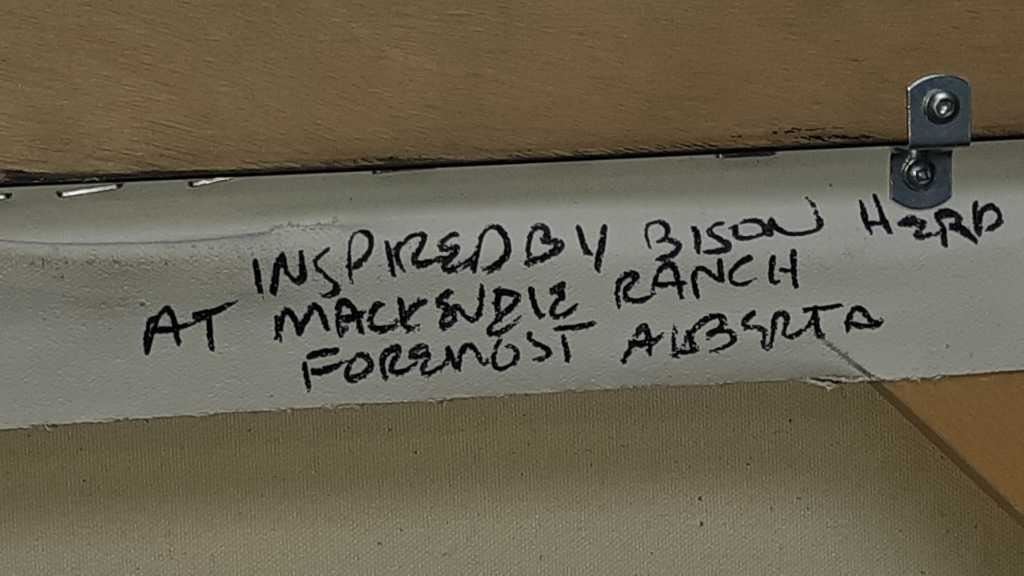 INSPIRED BY BISON HERD
AT MACKENZIE RANCH
FOREMOST ALBERTA